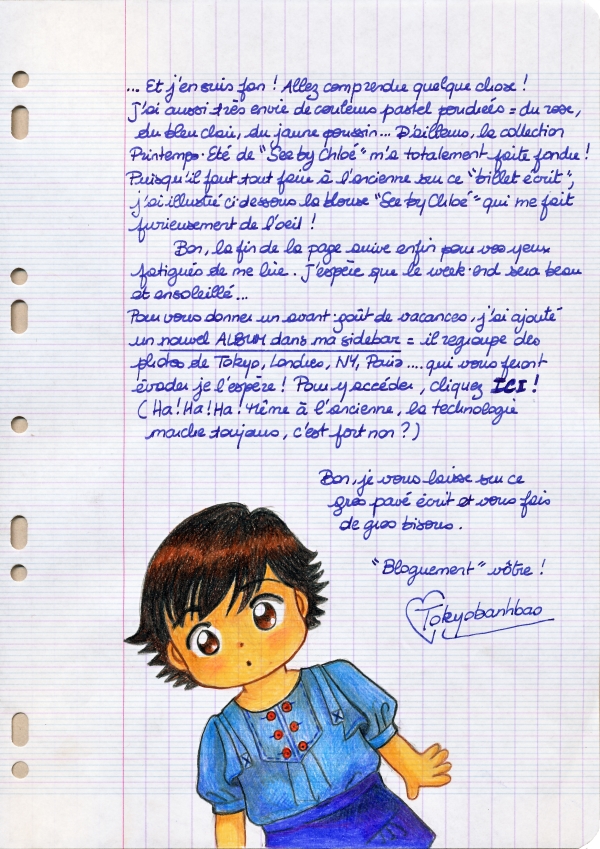 ... Et j'en suis fan ! Allez comprendre quelque chose !
J'ai aussi très envie de couleurs pastel poudrées = du rose,
du bleu clair, du jaune poussin... D'ailleurs, la collection
Printemps-Eté de "See by Chloé" m'a totalement faite fondre !
Puisqu'il faut tout faire à l'ancienne sur ce "billet écrit",
j'ai illustré ci-dessous la blouse "See by Chloé" qui me fait
furieusement de l'oeil !
Bon, la fin de la page arrive enfin pour vos yeux
fatigués de me lire. J'espère que le week-end sera beau
et ensoleillé...
Pour vous donner un avant-goût de vacances, j'ai ajouté
un nouvel ALBUM dans ma sidebar = il regroupe des
photos de Tokyo, Londres, NY, Paris .... qui vous feront
évader je l'espère ! Pour y accéder, cliquez ICI !
( Ha ! Ha ! Ha ! Même à l'ancienne, la technologie
marche toujours, c'est fort non ? )
Bon, je vous laisse sur ce
gros pavé écrit et vous fais
de gros bisous.
"Bloguement" vôtre !
Tokyobanhbao